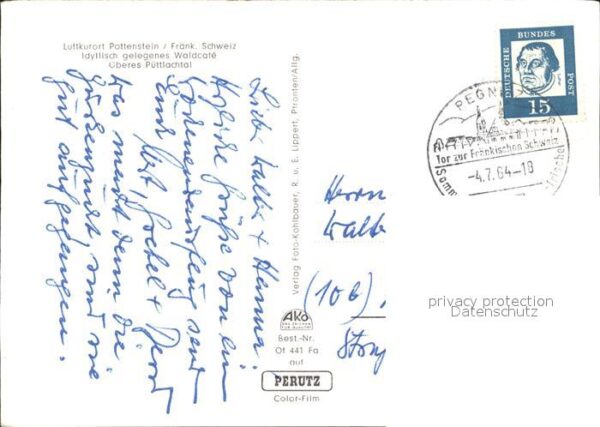 Luftkurort Pottenstein / Fränk. Schweiz
Idyllisch gelegenes Waldcafé
Oberes Püttlachtal
Liebe Walter + Hanna.
Herzliche Grüße von ein
Wochenendausflug send
Euch
Was macht denn die
sind sie
gut aufgegangen.
Verlag Foto-Kohlbauer, R. u. E. Lippert, Pfronten/Allg.
AKO
Best.-Nr.
Of 441 Fa
auf
PERUTZ
Color-Film
DEUTSCHE BUNDES POST
15
PEGN
Tor zur Fränkischen Schweiz
-4.7.64-18
Somm
frische
Herrn
Walte
(10b)
privacy protection
Datenschutz